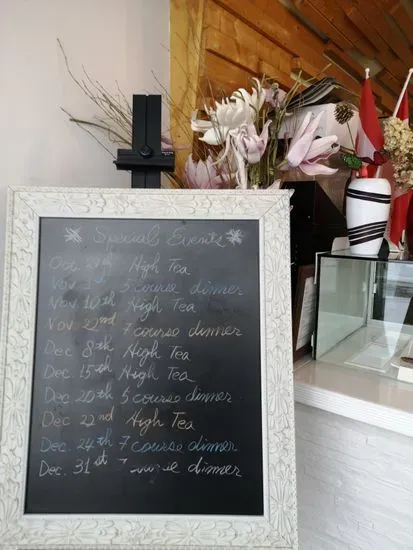 Special Events
Oct. High Tea
Nov 5 course dinner
Nov. 10th High Tea
Nov. 22nd 7 course dinner
Dec. 8th High Tea
Dec. 15th High Tea
Dec 20th 5 course dinner
Dec 22nd High Tea
Dec. 24th 7 course dinner
Dec. 31st dinner